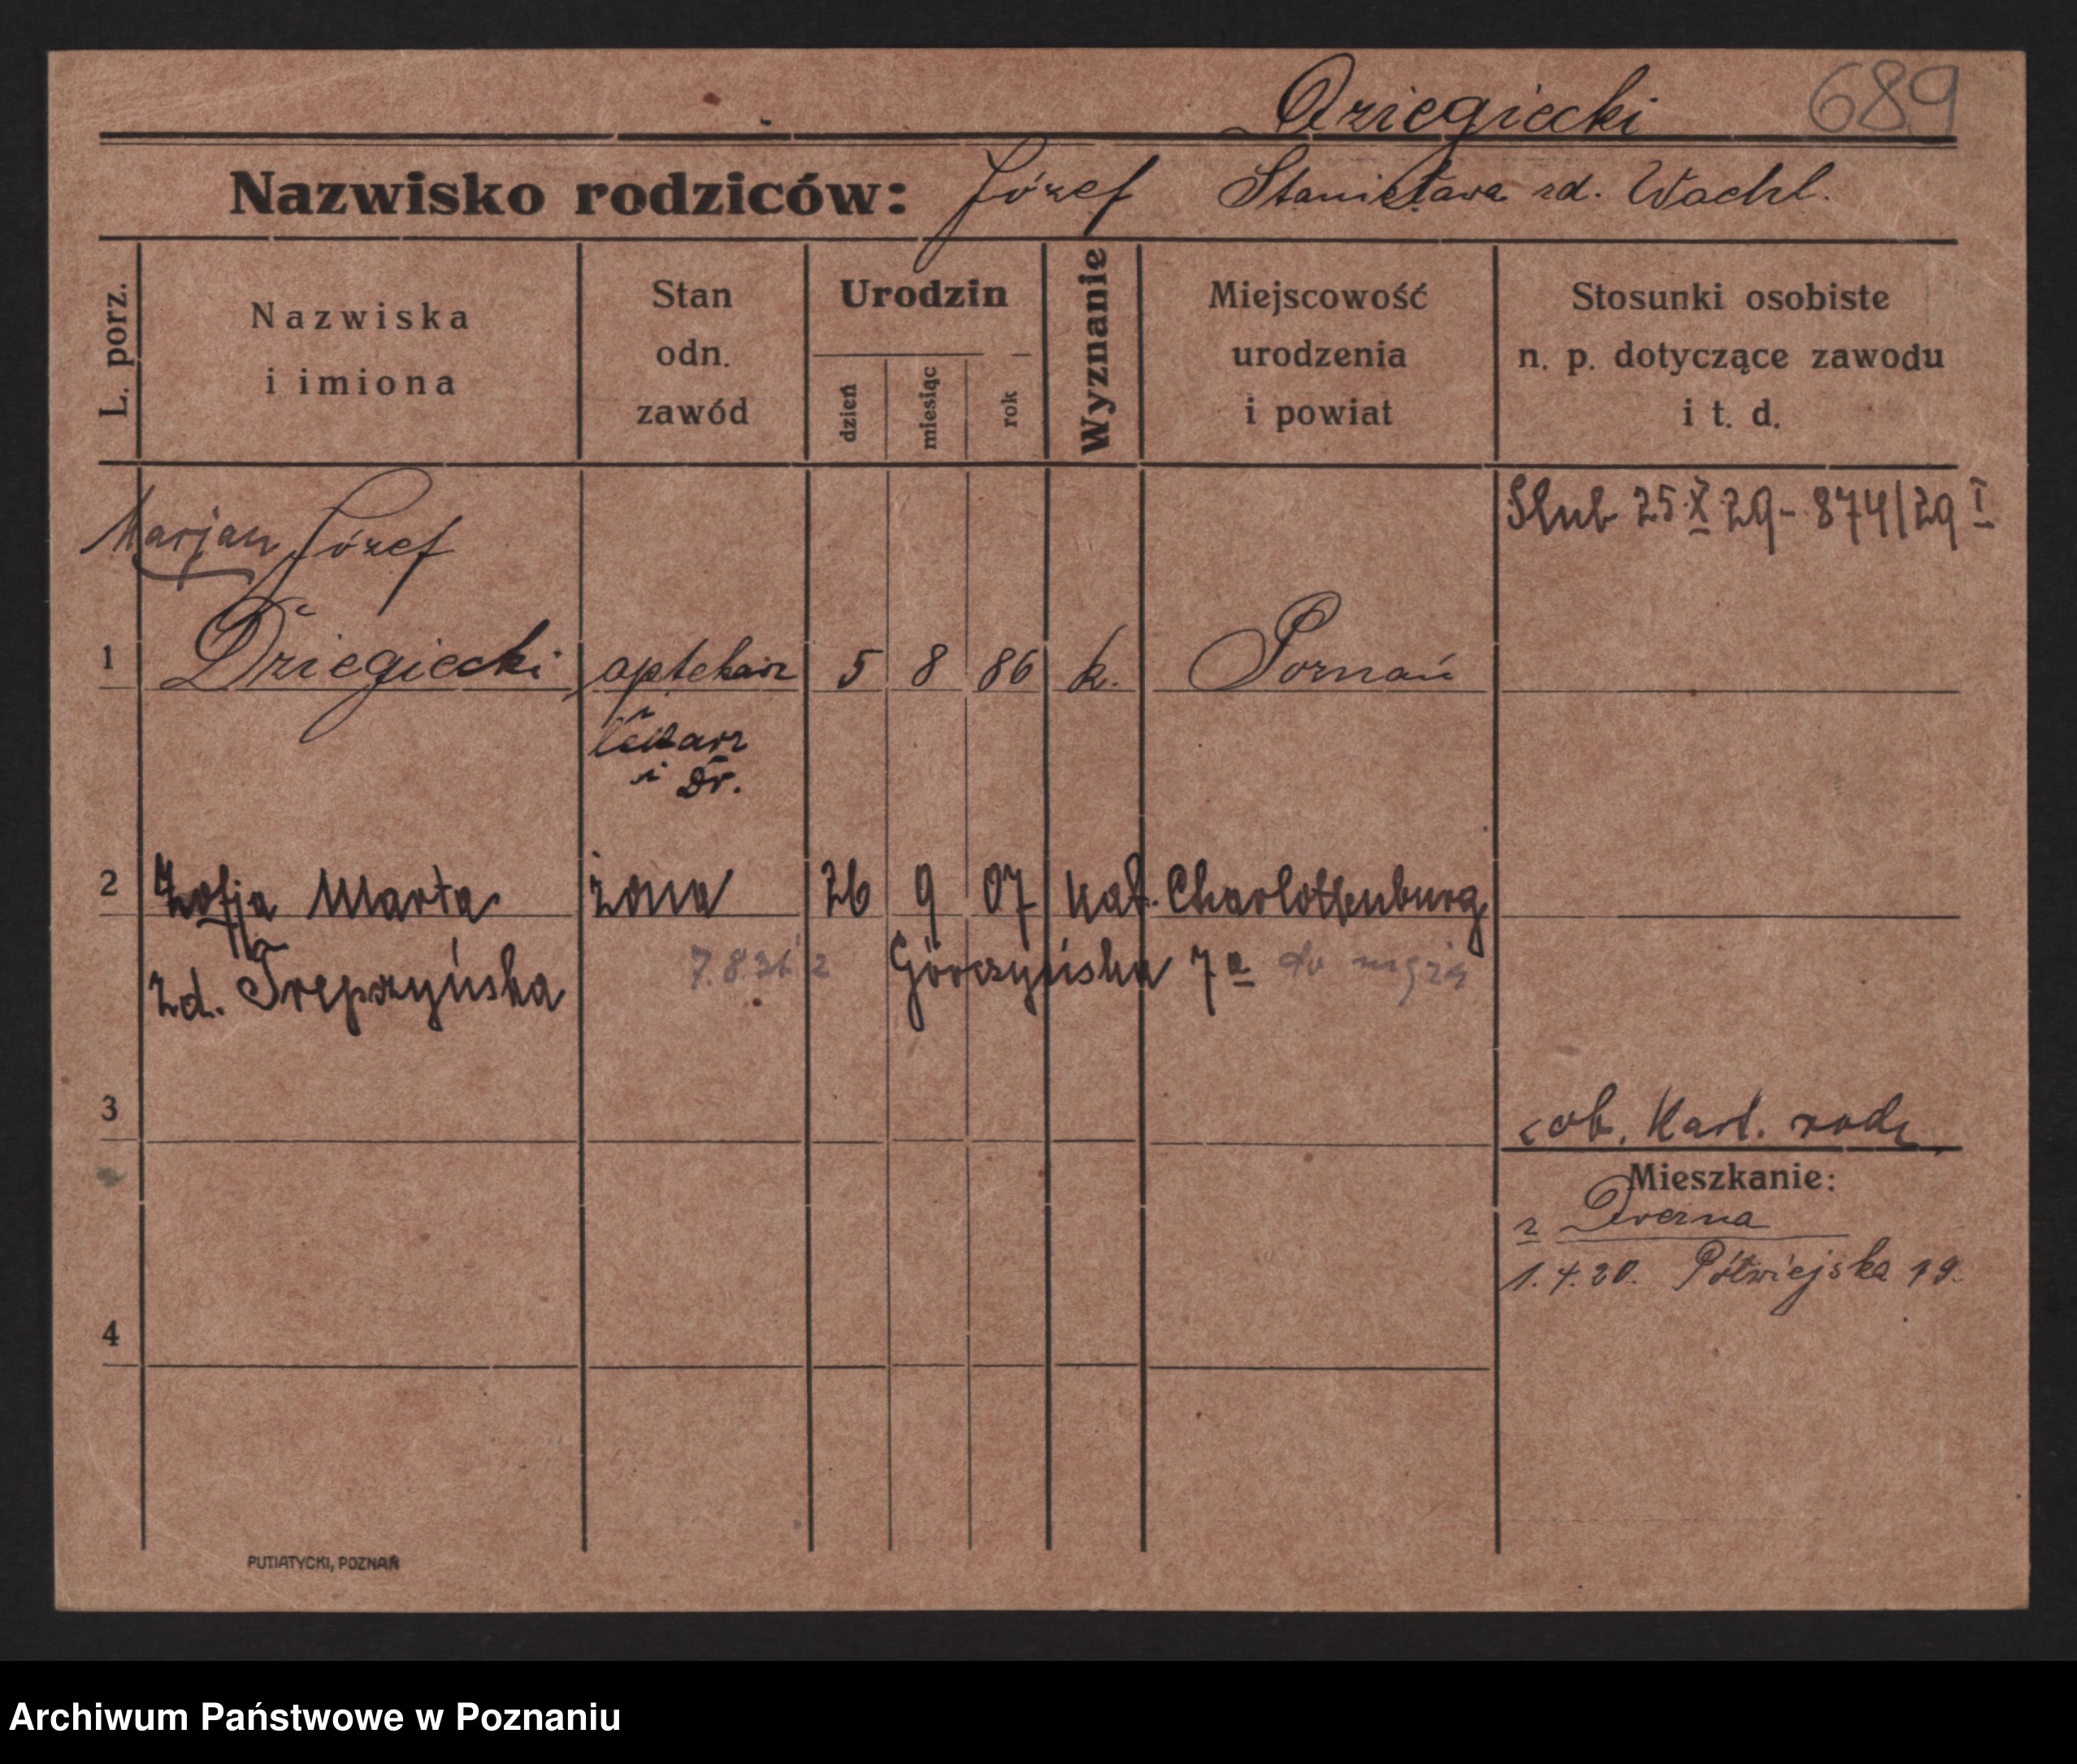 Dziegiecki 689
Nazwisko rodziców: Józef Stanisława zd. Wachl.
L. porz.
Nazwiska
i imiona
Stan
odn.
zawód
Urodzin
dzień
miesiąc
rok
Wyznanie
Miejscowość
urodzenia
i powiat
Stosunki osobiste
n. p. dotyczące zawodu
i t. d.
Ślub 25.X 29 - 874/29 I
Marjan Józef
1 Dziegiecki aptekarz 5 8 86 k. Poznań
lekarz
i Dr.
2 Zofja Marta żona 26 9 07 kat. Charlottenburg
zd. Trepczyńska 7.8.31 z Górczyńska 7a do męża
3
cob. Kart. rodz.
Mieszkanie:
z Drezna
1.4.20. Półwiejska 19.
4
PUTIATYCKI, POZNAŃ
Archiwum Państwowe w Poznaniu